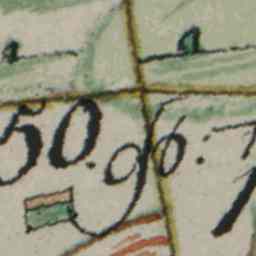 50. 96: 7